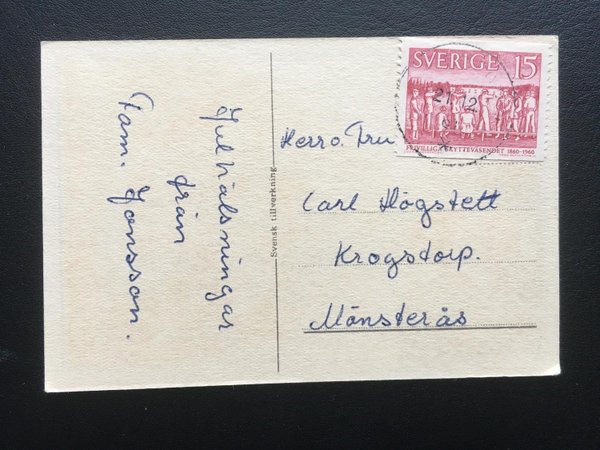 Julhälsningar
från
Fam. Jonsson.
Svensk tillverkning
SVERIGE 15
21.12
FRIVILLIGA SKYTTEVÄSENDET 1860-1960
Herr o. Fru
Carl Högstett
Krogstorp.
Mönsterås